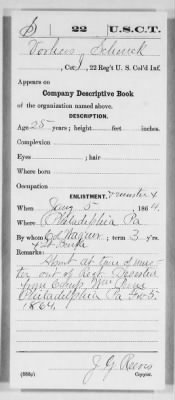 22 U.S.C.T.
Vorhees Schenck
, Co. I, 22 Reg't U. S. Col'd Inf.
Appears on
Company Descriptive Book
of the organization named above.
DESCRIPTION.
Age 25 years; height feet inches.
Complexion
Eyes ; hair
Where born
Occupation
ENLISTMENT.
When Jany 5, 1864.
Where Philadelphia Pa
By whom Wagner; term 3 y'rs.
Remarks:
Absent at time of mus-
ter out of Regt. Deserted
from Camp Wm Penn
Philadelphia Pa
1864.
J G Reeves
(383g) Copyist.